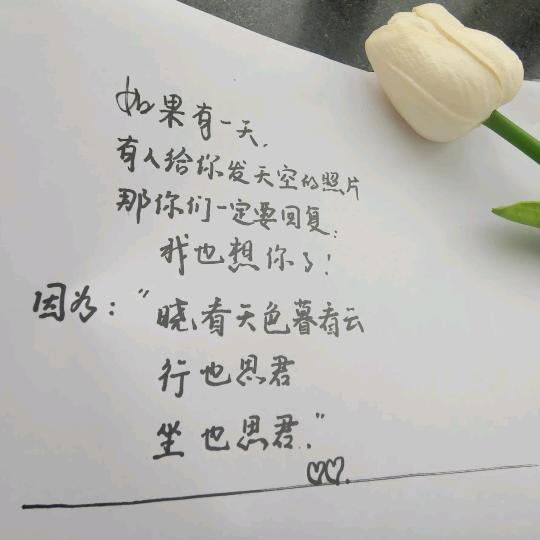 如果有一天,
有人给你发天空的照片
那你们一定要回复:
我也想你了!
因为:"晓看天色暮看云
行也思君
坐也思君."